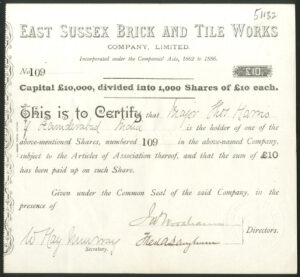 51132
EAST SUSSEX BRICK AND TILE WORKS
COMPANY, LIMITED.
Incorporated under the Companies' Acts, 1862 to 1886.
No 109
£10.
Capital £10,000, divided into 1,000 Shares of £10 each.
This is to Certify that Major Thos Harris
of
is the holder of one of the
above-mentioned Shares, numbered 109 in the above-named Company,
subject to the Articles of Association thereof, and that the sum of £10
has been paid up on such Share.
Given under the Common Seal of the said Company, in the
presence of
Directors.
W Hay
Secretary.